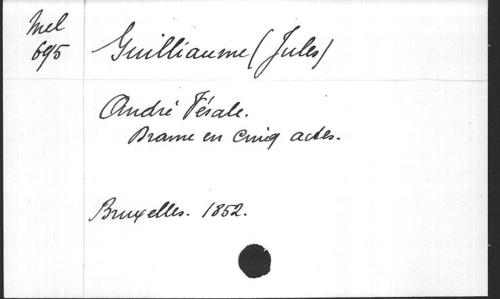 Mel
695
Guilliaume (Jules)
André Fésale.
Drame en cinq actes.
Bruxelles. 1852.